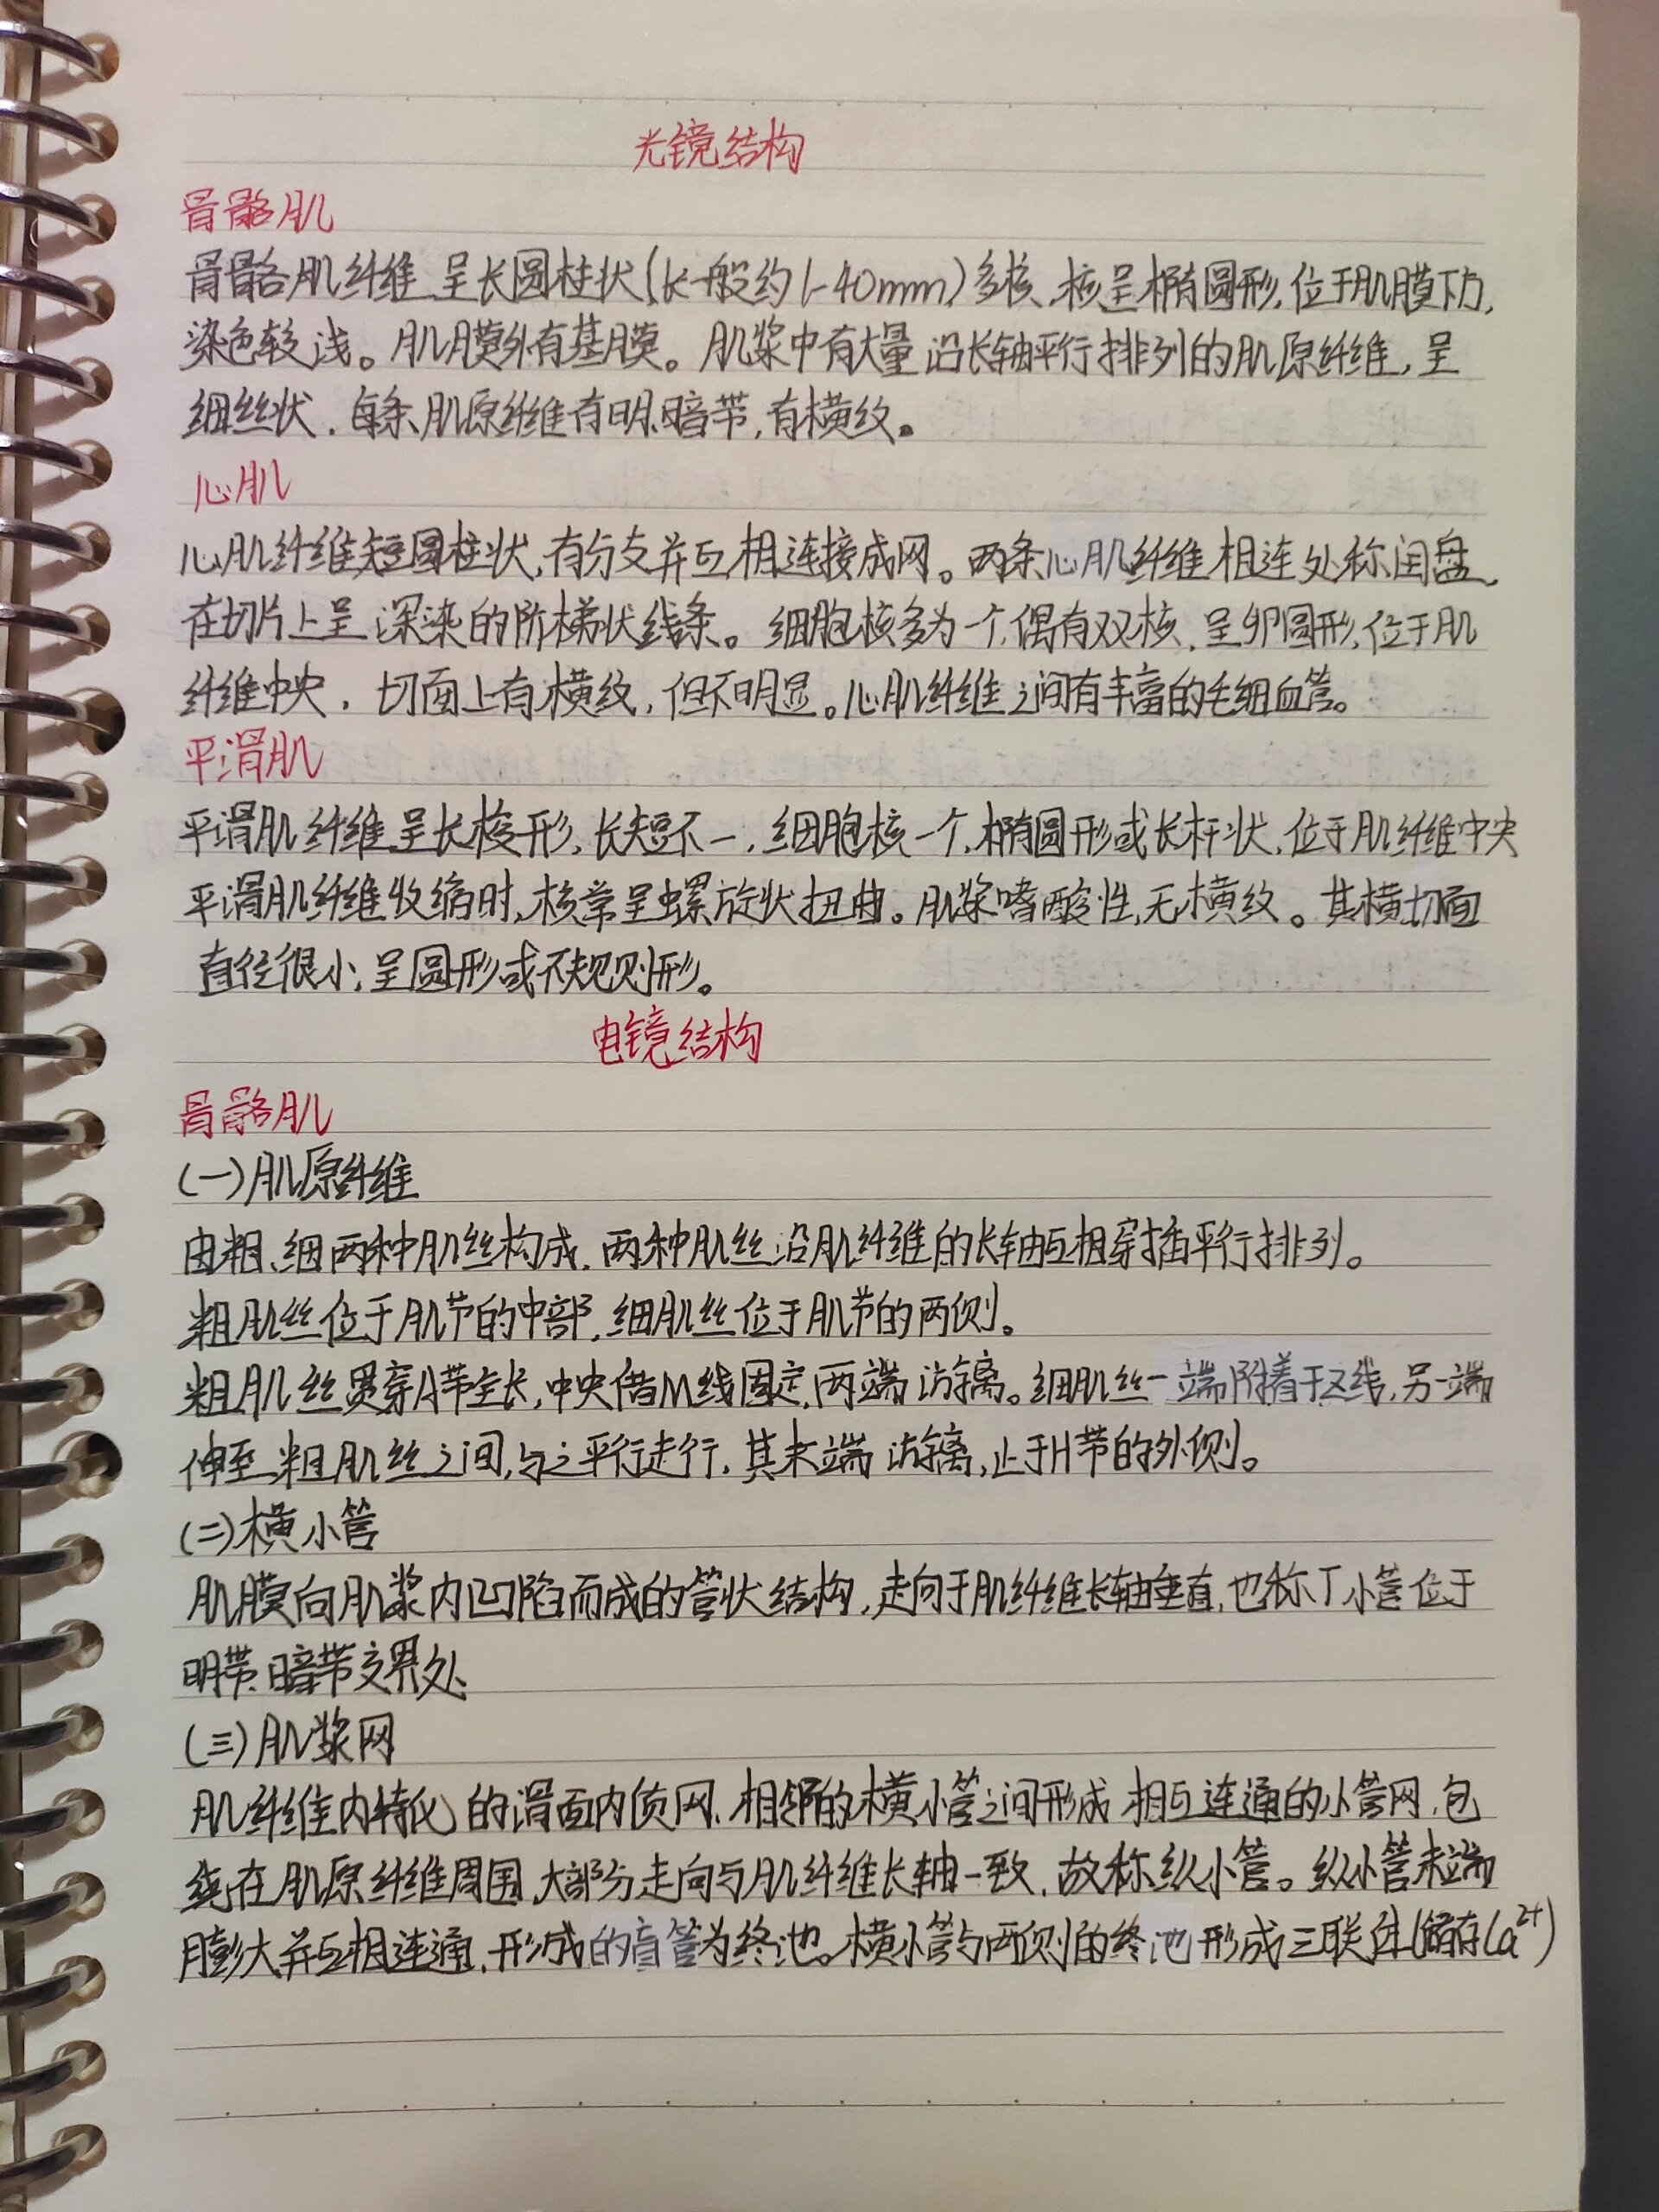 光镜结构
骨骼肌
骨骼肌纤维呈长圆柱状(长一般约1-40mm)多核、核呈椭圆形,位于肌膜下方,
染色较浅。肌膜外有基膜。肌浆中有大量沿长轴平行排列的肌原纤维,呈
细丝状,每条肌原纤维有明、暗带,有横纹。
心肌
心肌纤维短圆柱状,有分支并互相连接成网。两条心肌纤维相连处称闰盘,
在切片上呈深染的阶梯状线条。细胞核多为一个,偶有双核,呈卵圆形,位于肌
纤维中央,切面上有横纹,但不明显。心肌纤维之间有丰富的毛细血管。
平滑肌
平滑肌纤维呈长梭形,长短不一,细胞核一个,椭圆形或长杆状,位于肌纤维中央
平滑肌纤维收缩时,核常呈螺旋状扭曲。肌浆嗜酸性,无横纹。其横切面
直径很小,呈圆形或不规则形。
电镜结构
骨骼肌
(一)肌原纤维
由粗、细两种肌丝构成,两种肌丝沿肌纤维的长轴互相穿插平行排列。
粗肌丝位于肌节的中部,细肌丝位于肌节的两侧。
粗肌丝贯穿A带全长,中央借M线固定,两端游离。细肌丝一端附着于Z线,另一端
伸至粗肌丝之间,与之平行走行,其末端游离,止于H带的外侧。
(二)横小管
肌膜向肌浆内凹陷而成的管状结构,走向于肌纤维长轴垂直,也称T小管位于
明带、暗带交界处
(三)肌浆网
肌纤维内特化的滑面内质网,相邻的横小管之间形成相互连通的小管网,包
绕在肌原纤维周围,大部分走向与肌纤维长轴一致,故称纵小管。纵小管末端
膨大并互相连通,形成的盲管为终池。横小管与两侧的终池形成三联体(储存Ca²⁺)